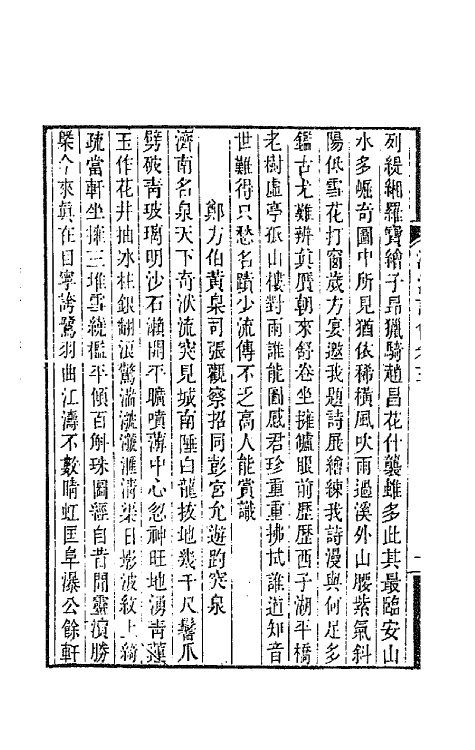 列緹緗羅寶繪子昂獵騎趙昌花什襲雖多此其最臨安山
水多崛奇圖中所見猶依稀橫風吹雨過溪外山腰紫氣斜
陽低雪花打窗歲方宴邀我題詩展繪練我詩漫與何足多
鑑古尤難辨真贋朝來舒卷坐擁罏眼前歷歷西子湖平橋
老樹虛亭孤山樓對雨誰能圖戚君珍重重拂拭誰道知音
世難得只愁名蹟少流傳不乏高人能賞識
鄭方伯黃臬司張觀察招同彭宮允遊趵突泉
濟南名泉天下奇洑流突見城南陲白龍拔地幾千尺鬐爪
劈破青玻璃明沙石瀨開平曠噴薄中心忽神旺地湧青蓮
玉作花井抽冰柱銀翻浪驚湍瀺灂滙清渠日影波紋上綺
疏當軒坐擁三堆雪繞檻平傾百斛珠圖經自昔聞靈濆勝
槩今來眞在目寧誇鷺羽曲江濤不數晴虹匡阜瀑公餘軒